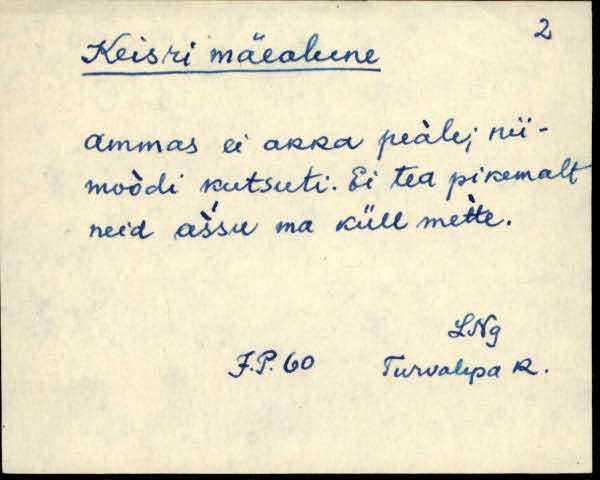 2
Keisri mäealune
ammas ei akka peàle; nii-
moòdi kutsuti. Ei tea pikemalt
neid às̀su ma küll mètte.
LNg
J.P. 60 Turvalepa k.